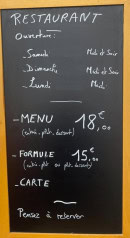 RESTAURANT
Ouverture:
- Samedi Midi et Soir
- Dimanche Midi et Soir
- Lundi Midi
- MENU 18,00
(entrée, plat, dessert)
- FORMULE 15,00
(entrée, plat ou plat, dessert)
- CARTE
Pensez à réserver